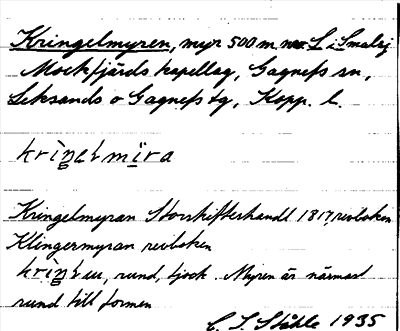 Kringelmyren, myr 500 m nv. L i Smalsj
Mockfjärds kapellag, Gagnefs sn,
Leksands o Gagnefs tg, Kopp. l.
kriŋəlmira
Kringelmyran Storskifteshandl 1817, revboken
Klingermyran revboken
rund, tjock. Myren är närmast
rund till formen
E. I. Ståhle 1935